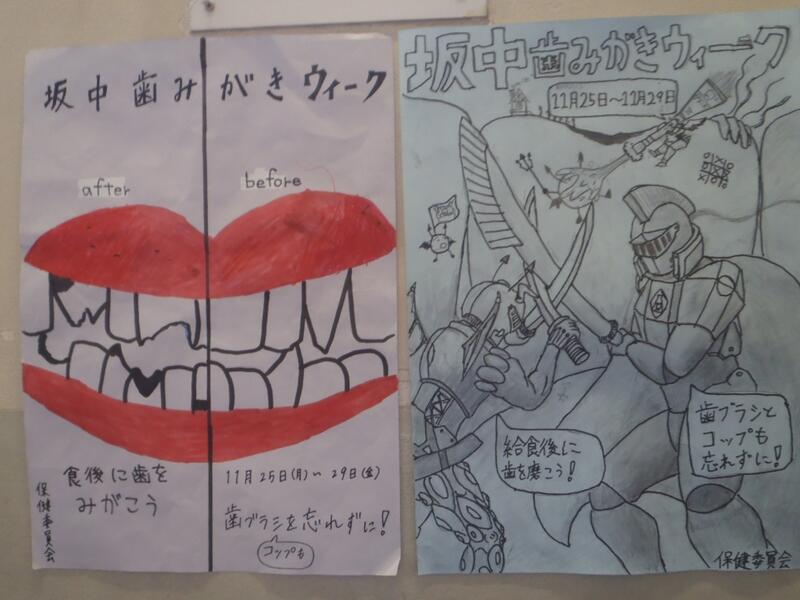 坂中歯みがきウィーク
after
before
食後に歯を
みがこう
保健委員会
11月25日(月)～29日(金)
歯ブラシを忘れずに!
コップも
坂中歯みがきウィーク
11月25日～11月29日
給食後に
歯を磨こう!
歯ブラシと
コップも
忘れずに!
保健委員会